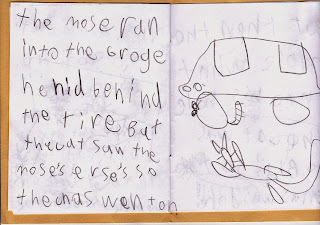 the mose ran
into the Groge
he hid behind
the tire But
the cat saw the
mose's erse's so
the chas went on